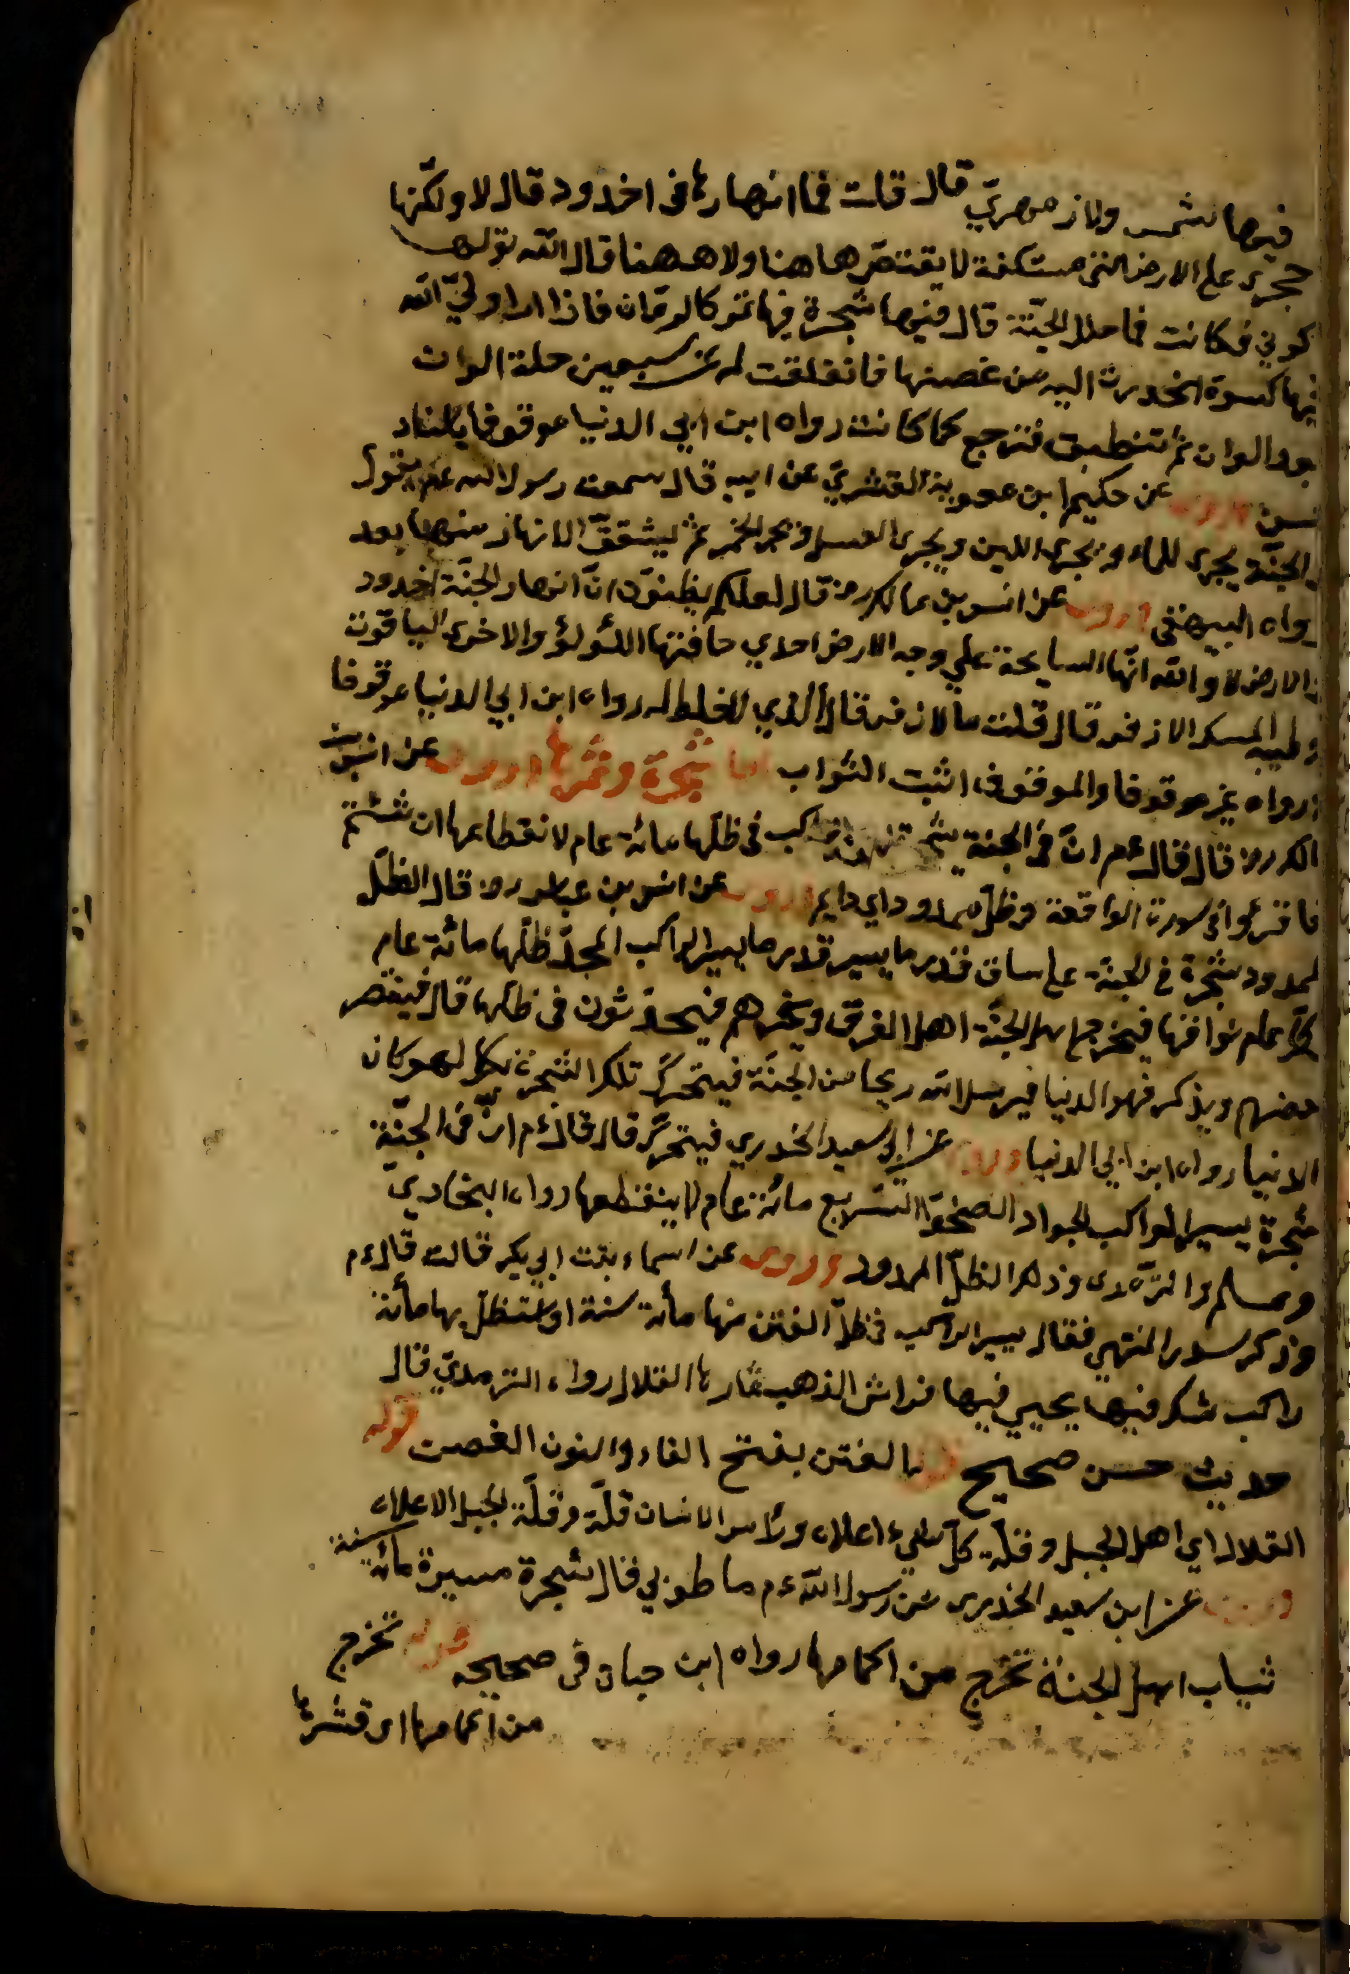 فيها شمس ولا زمهرير قال قلت فما انهارها فى اخدود قال لا ولكنها
تجرى على الارض مستكفة لا يقتصر هاهنا ولا ههنا قال الله تعالى لها
كونى فكانت فما حلل الجنّة قال فيها شجرة فيها ثمر كالرمّان فاذا اراد وليّ الله
فيها كسوة انحدرت اليه من غصنها فانفلقت له عن سبعين حلة الوان
بعد الوان ثم تنطبق فترجع كما كانت رواه ابن ابي الدنيا موقوفا باسناد
حسن وروى عن حكيم ابن معوية القشيريّ عن ابيه قال سمعت رسول الله عم يقول
فى الجنّة بحر الماء وبحر اللبن وبحر العسل وبحر الخمر ثم يشقّق الانهار منها بعد
رواه البيهقى وروى عن انس بن مالك رض قال لعلكم يظنّون انّ انهار الجنّة اخدود
فى الارض لا والله انّها السايحة على وجه الارض احدي حافتها اللؤلؤ والاخرى الياقوت
وطينه المسك الاذفر قال قلت ما الاذفر قال الذي لا خلط له رواه ابن ابي الدنيا موقوفا
ورواه غير موقوفا والموقوف اثبت الثواب اما شجرة وثمرها وروى عن انس بن
مالك رض قال قال عم انّ فى الجنة شجرة الراكب فى ظلّها مائة عام لا يقطاعها ان شئتم
فاقرؤا فى سورة الواقعة وظلّ ممدود اي دايم وروى عن انس بن عباس رض قال الظلّ
الممدود شجرة فى الجنة على ساق قدر ما يسير الراكب المجدّ ظلّها مائة عام
كلّ عام نوافها فيخرج اهل الجنّة اهل الغرف وغيرهم فيحدّثون فى ظلّها قال فيقصر
بعضهم ويذكر فهو الدنيا فيرسل الله ريحا من الجنّة فيتحرّك تلك الشجرة بكل لهو كان
الدنيا رواه ابن ابي الدنيا وروى عن ابي سعيد الخدري فيتحرّك قال قال عم انّ فى الجنّة
شجرة يسير الراكب الجواد السّريع مائة عام لا ينقطعها رواه البخاديّ
ومسلم والترمدى وذهر الظلّ الممدود وروى عن اسماء بنت ابي بكر قالت قال عم
وذكر سدر المنتهي فقال يسير الراكب فى ظلّ الفنن منها مأة سنة او يستظلّ بها مأة
راكب شكر فيها يحيى فيها فراش الذهب ثمارها القلال رواه الترمديّ قال
حديث حسن صحيح قوله الفنن بفتح الفاء والنون الغصن قوله
القلال اي اهل الجبل وقلّة كلّ شىء اعلاه ورأس الانسان قلّة وقلّة الجبل الاعلاء
وروى عن ابن سعيد الخدرى عن رسول الله عم ما طوبي قال شجرة مسيرة مائة سنة
ثياب اهل الجنة تخرج من اكمامها رواه ابن حبان فى صحيحه قوله تخرج
من اكمامها اى قشرها